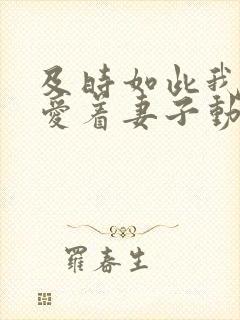 及時如此我
愛着妻子動
羅春生